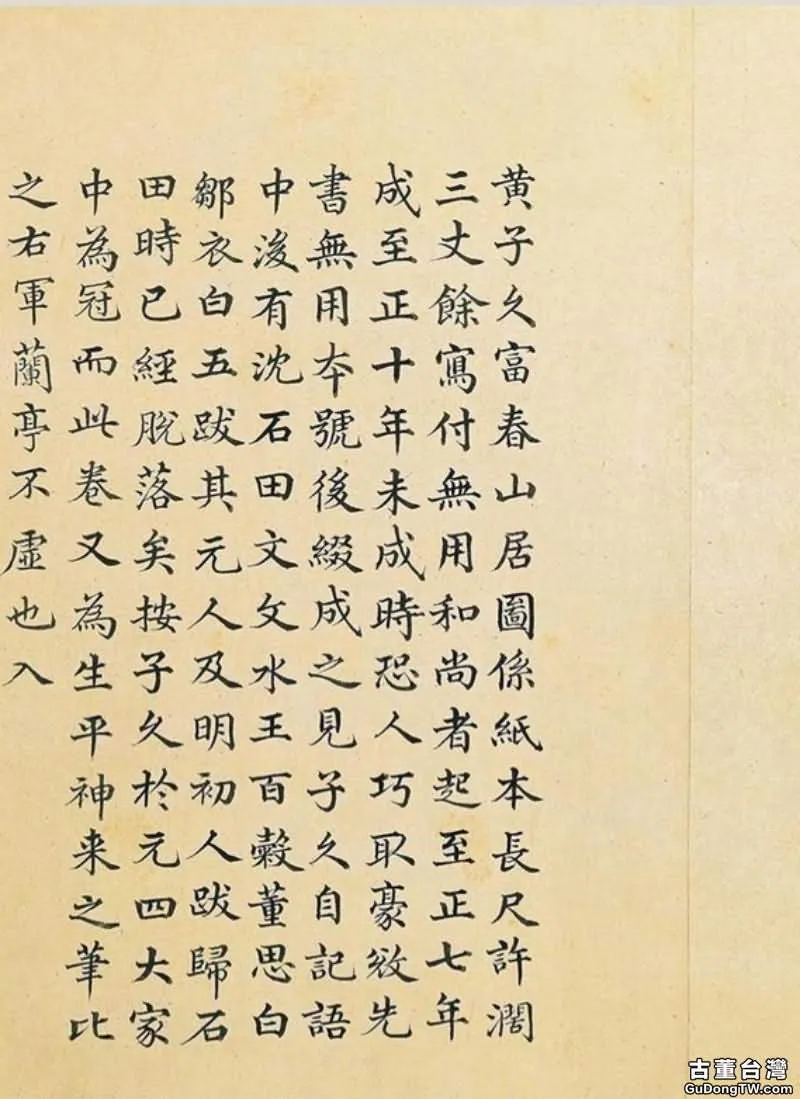 黄子久富春山居圖係紙本長尺許濶
三丈餘寫付無用和尚者起至正七年
成至正十年未成時恐人巧取豪敓先
書無用本號後綴成之見子久自記語
中後有沈石田文文水王百穀董思白
鄒衣白五跋其元人及明初人跋歸石
田時已經脫落矣按子久於元四大家
中為冠而此卷又為生平神来之筆比
之右軍蘭亭不虛也入
古董台灣
GuDongTW.com